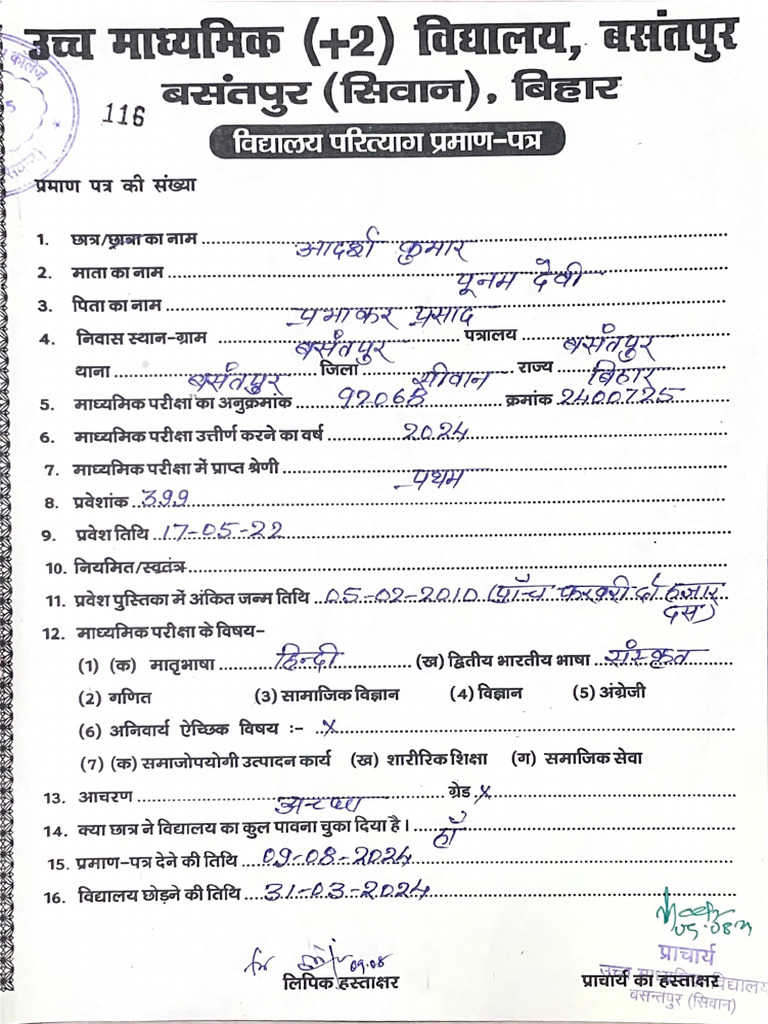 उच्च माध्यमिक (+2) विद्यालय, बसंतपुर
बसंतपुर (सिवान), बिहार
116
विद्यालय परित्याग प्रमाण-पत्र
प्रमाण पत्र की संख्या
1. छात्र/छात्रा का नाम आदर्श कुमार
2. माता का नाम पूनम देवी
3. पिता का नाम प्रभाकर प्रसाद
4. निवास स्थान-ग्राम बसंतपुर पत्रालय बसंतपुर
थाना बसंतपुर जिला सीवान राज्य बिहार
5. माध्यमिक परीक्षा का अनुक्रमांक 92068 क्रमांक 2400725
6. माध्यमिक परीक्षा उत्तीर्ण करने का वर्ष 2024
7. माध्यमिक परीक्षा में प्राप्त श्रेणी प्रथम
8. प्रवेशांक 399
9. प्रवेश तिथि 17-05-22
10. नियमित/स्वतंत्र
11. प्रवेश पुस्तिका में अंकित जन्म तिथि 05-02-2010 (पाँच फरवरी दो हजार
दस)
12. माध्यमिक परीक्षा के विषय-
(1) (क) मातृभाषा हिन्दी (ख) द्वितीय भारतीय भाषा संस्कृत
(2) गणित (3) सामाजिक विज्ञान (4) विज्ञान (5) अंग्रेजी
(6) अनिवार्य ऐच्छिक विषय :- x
(7) (क) समाजोपयोगी उत्पादन कार्य (ख) शारीरिक शिक्षा (ग) समाजिक सेवा
13. आचरण अच्छा ग्रेड x
14. क्या छात्र ने विद्यालय का कुल पावना चुका दिया है। हाँ
15. प्रमाण-पत्र देने की तिथि 09-08-2024
16. विद्यालय छोड़ने की तिथि 31-03-2024
09.08
लिपिक हस्ताक्षर
प्राचार्य
प्राचार्य का हस्ताक्षर
उच्च माध्यमिक विद्यालय
बसन्तपुर (सिवान)